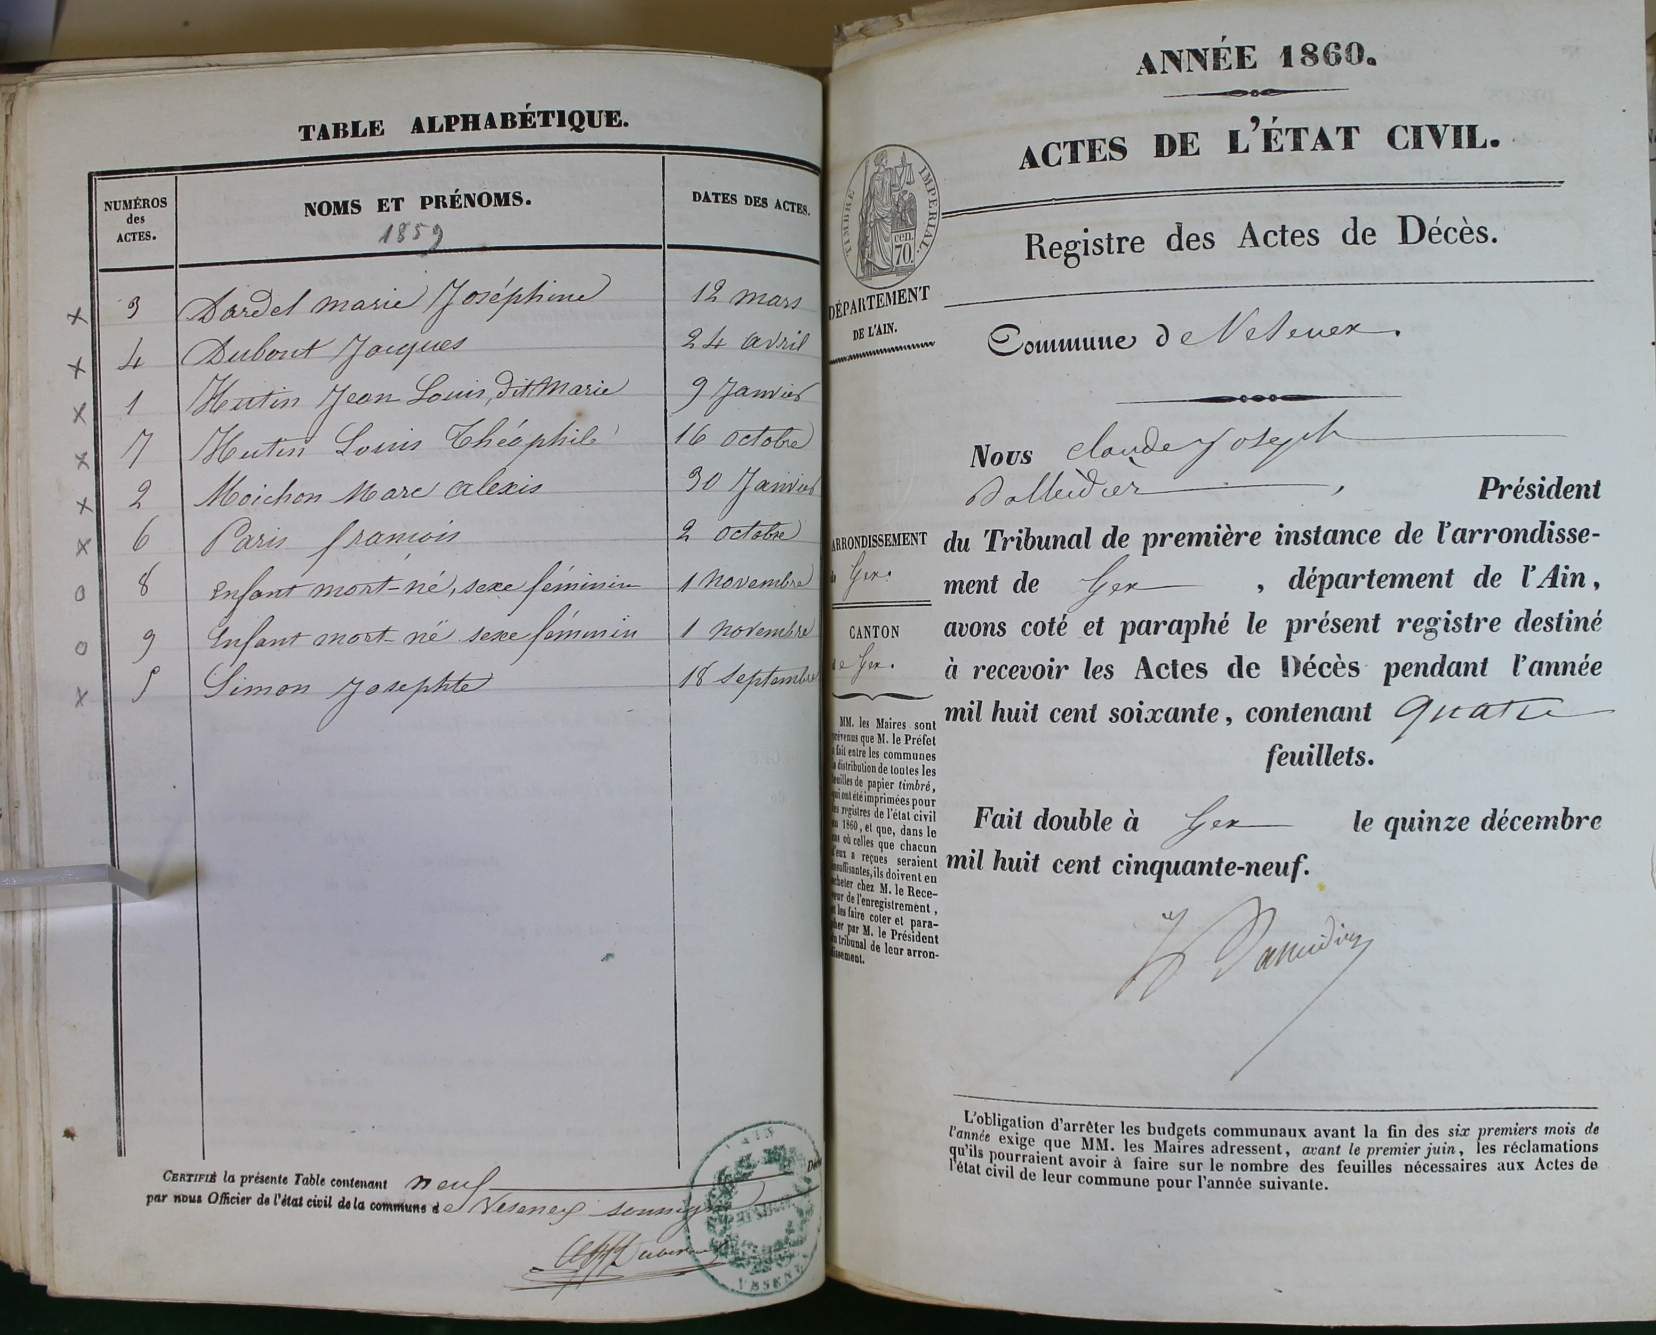 TABLE ALPHABÉTIQUE.
NUMÉROS des ACTES.
NOMS ET PRÉNOMS.
DATES DES ACTES.
1859
x 3 Dardel marie Joséphine 12 mars
x 4 Dubout Jacques 24 avril
x 1 Hutin Jean Louis, dit Marie 9 Janvier
x 7 Hutin Louis Théophile 16 octobre
x 2 Moichon Marc alexis 30 Janvier
x 6 Paris françois 2 octobre
o 8 Enfant mort-né, sexe féminin 1 novembre
o 9 Enfant mort né sexe féminin 1 novembre
x 5 Simon Josephte 18 septembre
CERTIFIÉ la présente Table contenant neuf
par nous Officier de l'état civil de la commune de Vesenex soussigné
AIN
ANNÉE 1860.
ACTES DE L'ÉTAT CIVIL.
TIMBRE IMPÉRIAL.
cen. 70.
Registre des Actes de Décès.
DÉPARTEMENT
DE L'AIN.
Commune de Vesenex.
Nous Claude Joseph
, Président
ARRONDISSEMENT
de Gex.
CANTON
de Gex.
du Tribunal de première instance de l'arrondisse-
ment de Gex, département de l'Ain,
avons coté et paraphé le présent registre destiné
à recevoir les Actes de Décès pendant l'année
mil huit cent soixante, contenant quatre
feuillets.
MM. les Maires sont
prévenus que M. le Préfet
a fait entre les communes
la distribution de toutes les
feuilles de papier timbré,
qui ont été imprimées pour
les registres de l'état civil
en 1860, et que, dans le
cas où celles que chacun
d'eux a reçues seraient
insuffisantes, ils doivent en
acheter chez M. le Rece-
veur de l'enregistrement,
et les faire coter et para-
pher par M. le Président
du tribunal de leur arron-
dissement.
Fait double à Gex le quinze décembre
mil huit cent cinquante-neuf.
L'obligation d'arrêter les budgets communaux avant la fin des six premiers mois de
l'année exige que MM. les Maires adressent, avant le premier juin, les réclamations
qu'ils pourraient avoir à faire sur le nombre des feuilles nécessaires aux Actes de
l'état civil de leur commune pour l'année suivante.